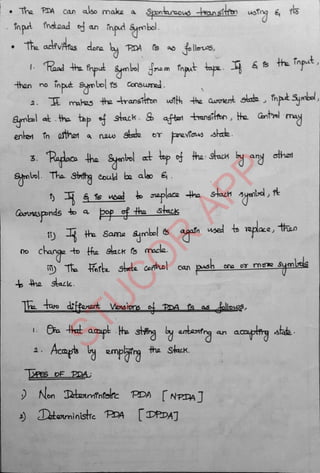 • The PDA can also make a Spontaneous transition using ε, its
input instead of an input symbol.
• The activities done by PDA is as follows.
1. Read the input symbol from input tape. If ε is the input,
then no input symbol is consumed.
2. It makes the transition with the current state, input symbol,
Symbol at the top of stack. So after transition, the control may
enter in either a new state or previous state.
3. Replace the symbol at top of the stack by any other
symbol. The string could be also ε.
i) If ε is used to replace the stack symbol, it
corresponds to a pop of the stack
ii) If the same symbol is again used to replace, then
no change to the stack is made.
iii) The finite state control can push one or more symbols
to the stack.
The two different Versions of PDA is as follows.
1. One that accept the string by entering an accepting state.
2. Accepts by emptying the stack.
TYPES OF PDA:
1) Non Deterministic PDA [NPDA]
2) Deterministic PDA [DPDA]
STUCOR APP